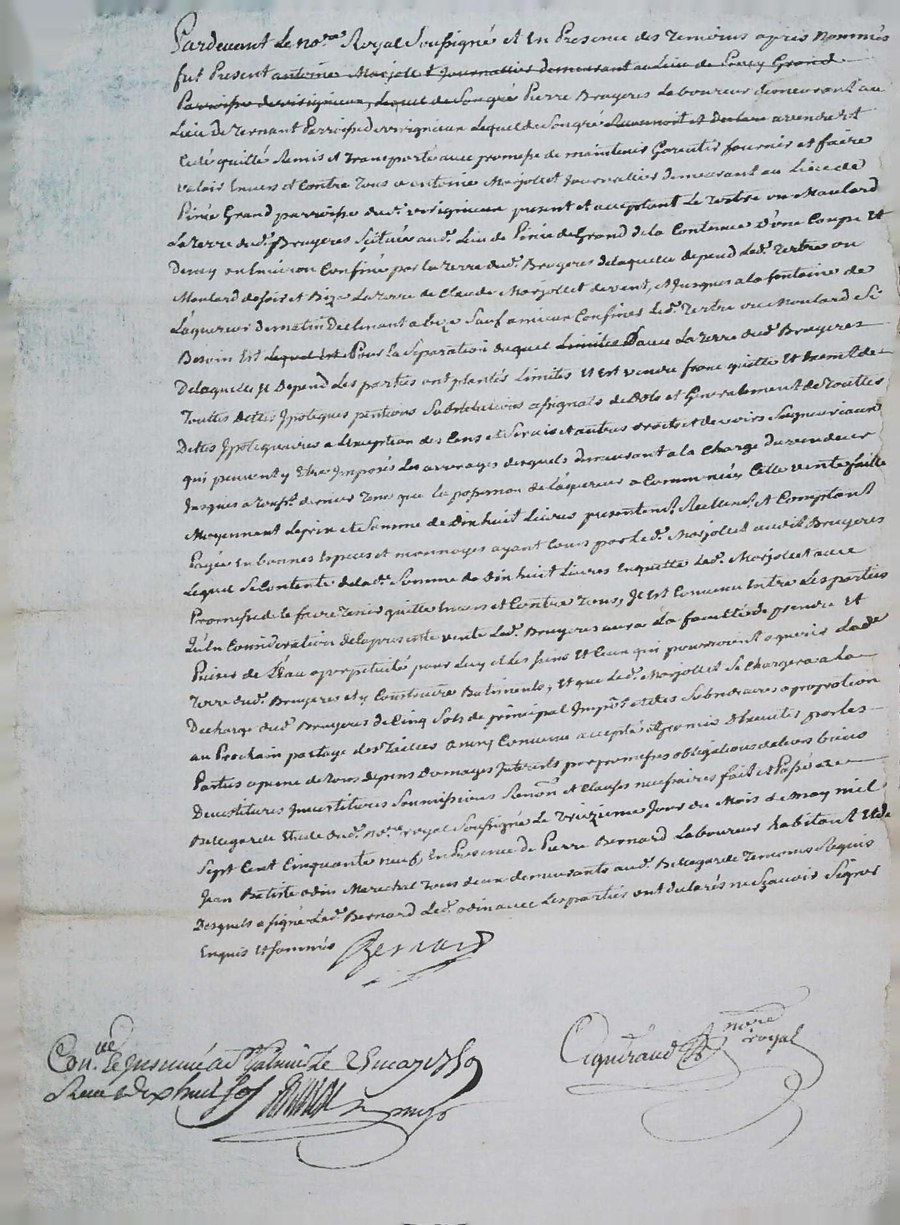 Pardevant Le no.re Royal Soussigné et En Presence des Temoins apres Nommés
fut Present antoine Marjollet Journallier demeurant au Lieu de Grand
Parroisse de versignieux, Lequel de Son gré Pierre Bruyeres Laboureur demeurant au
Lieu de Ternant Parroisse de versignieux Lequel de Son gré et Declare a vendu et
Cedé quitté Remis et Transporté avec promesse de maintenir Garentir fournir et faire
valoir Envers et Contre Tous a antoine Marjollet Journallier demeurant au Lieu de
Grand parroisse dud. versignieux present et acceptant Le Tertre ou Moulard
La Terre dud. Bruyeres Scituée aud. Lieu de Grand de la Contenue d'une Coupe et
Demy ou Environ Confiné par la Terre dud. Bruyeres de laquelle depend Led. Tertre ou
Moulard de soir et Bize La terre de Claude Marjollet de vent, et Jusques a la fontaine de
Laquereur de matin Declinant a bize Sauf amieux Confines Led. Tertre ou Moulard Si
Besoin Est Lequel est Pour la Separation duquel Limites D'avec La Terre dud. Bruyeres
De laquelle il Depend Les parties ont plantés Limites et Est vendu franc quitte Et
Touttes Dettes Ypoteques pentions Substitutions de Dols et Generalement de Touttes
Dettes Ypotequaires a L'Exception des Cens et Servis et autres droits et devoirs Seigneuriaux
qui peuvent y Etre Imposés Les arrerages desquels demeurant a la Charge du vendeur
Jusques a que la possession de Laquereur a Commencée Cette vente faitte
Moyennant Le prix et Somme de Dixhuit Livres presentem.t Reellem.t et Comptant
Payée En bonnes Especes et monnoyes ayant Cours par Led. Marjollet audit Bruyeres
Lequel Se Contente de lad. Somme de dixhuit Livres Enquitte Led. Marjollet avec
Promesse de le faire Tenir quitte Envers et Contre Tous, Il Est Convenu Entre Les parties
Qu'En Consideration de la presente vente Led. Bruyeres aura La faculté de prendre et
Puiser de L'Eau a perpetuité pour Luy et Les Siens Et Ceux qui pourroient aquerir Lade
Terre dud. Bruyeres et y Construire Batiments, Et que Led. Marjollet Se Chargera a la
Decharge dud. Bruyeres de Cinq Sols de principal Impos.t et des Subsidiaires a proportion
au Prochain partage des Tailles ainsy Convenu accepté et promis Observer par les
Parties a peine de Tous depens Domages Interets par promesses obligations de leurs biens
Devestitures Investitures Soumissions Renon. et Clauses necessaires fait et Passé a
Bellegarde Etude dud. no.re royal Soussigné Le Treizieme Jour du Mois de may mil
Sept Cent Cinquante neuf En Presence de Pierre Bernard Laboureur habitant Et de
Jean Batiste odin Marechal Tous deux demeurants aud. Bellegarde Temoins Requis
Desquels a Signé Led. Bernard Led. odin avec Les parties ont declarés ne Sçavoir Signer
Enquis Et Sommés Bernard
no.re
royal
Con.lé et Insinué a S.t Galmier le 25 may 1759
Recu dix huit sols